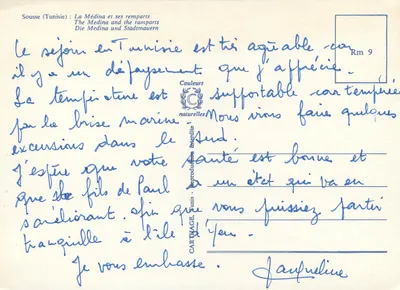 Sousse (Tunisie) : La Médina et ses remparts
The Medina and the ramparts
Die Medina und Stadtmauern
Rm 9
Couleurs
naturelles
CARTHAGE, Tunis - Reproduction interdite
Le séjour en Tunisie est très agréable car
il y a un dépaysement que j'apprécie.
La température est supportable car tempérée
par la brise marine. Nous irons faire quelques
excursions dans le Sud.
J'espère que votre santé est bonne et
que le fils de Paul a un état qui va en
s'améliorant. afin que vous puissiez partir
tranquille à l'île d'Yeu.
Je vous embrasse. Jacqueline